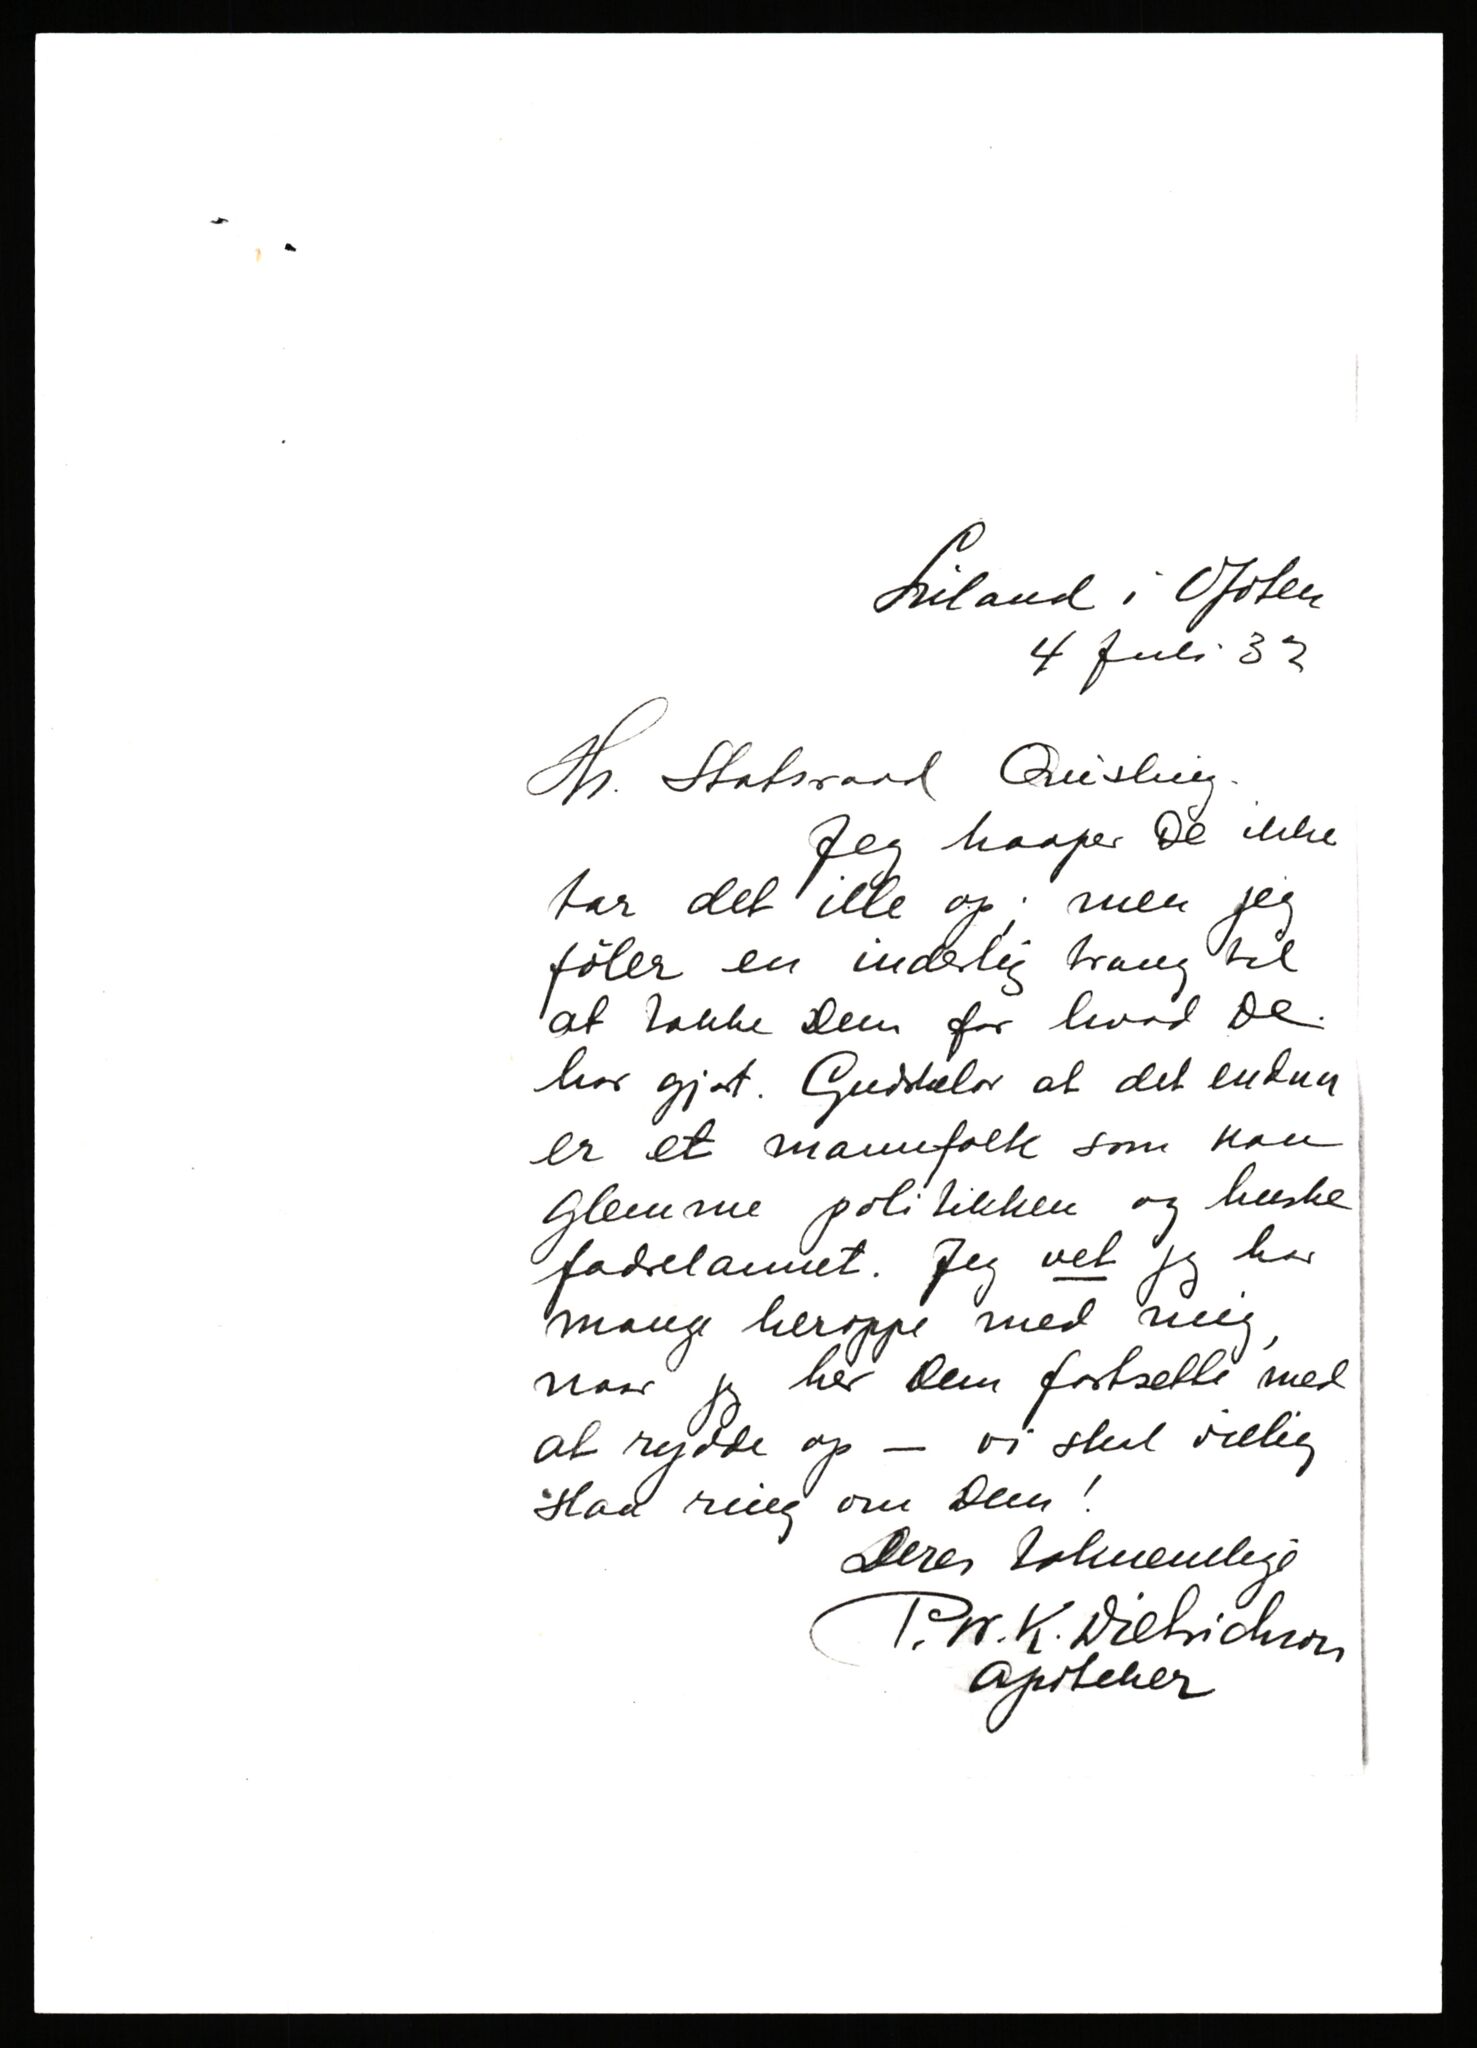 Liland i Ofoten
4 Juli 32
Hr. Statsraad Quisling.
Jeg haaper De ikke
tar det ille op; men jeg
föler en inderlig trang til
at takke Dem for hvad De
har gjort. Gudskelov at det endnu
er et mannfolk som kan
glemme politikken og huske
fædrelannet. Jeg vet jeg har
mange heroppe med mig,
naar jeg ber Dem fortsette med
at rydde op — vi skal villig
staa ring om Dem!
Deres taknemlige
P. W. K. Dietrichson
Apoteker